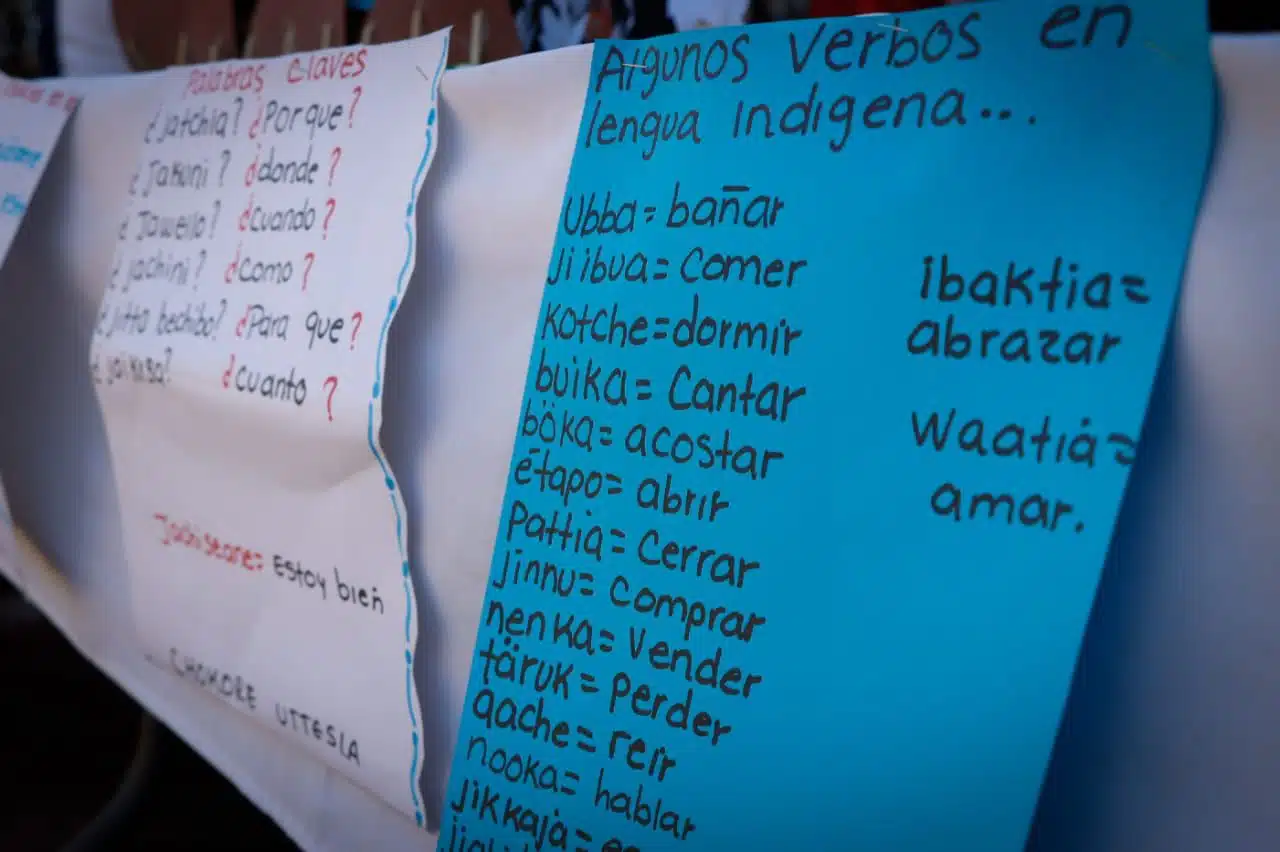 Palabras claves
¿Jatchia? ¿Por que?
¿Jakuni? ¿donde?
¿Jaweilo? ¿cuando?
¿jachini? ¿como?
¿jitta bechibo? ¿Para que?
¿cuanto?
Estoy bien
CHOKORE UTTESIA
Algunos Verbos en
lengua indigena...
Ubba = bañar
Jiibua = comer
kotche = dormir
buika = Cantar
böka = acostar
étapo = abrir
Pattia = cerrar
jinnu = comprar
nenka = Vender
täruk = perder
aache = reir
nooka = hablar
Jikkaja =
ibaktia =
abrazar
Waatiá =
amar.